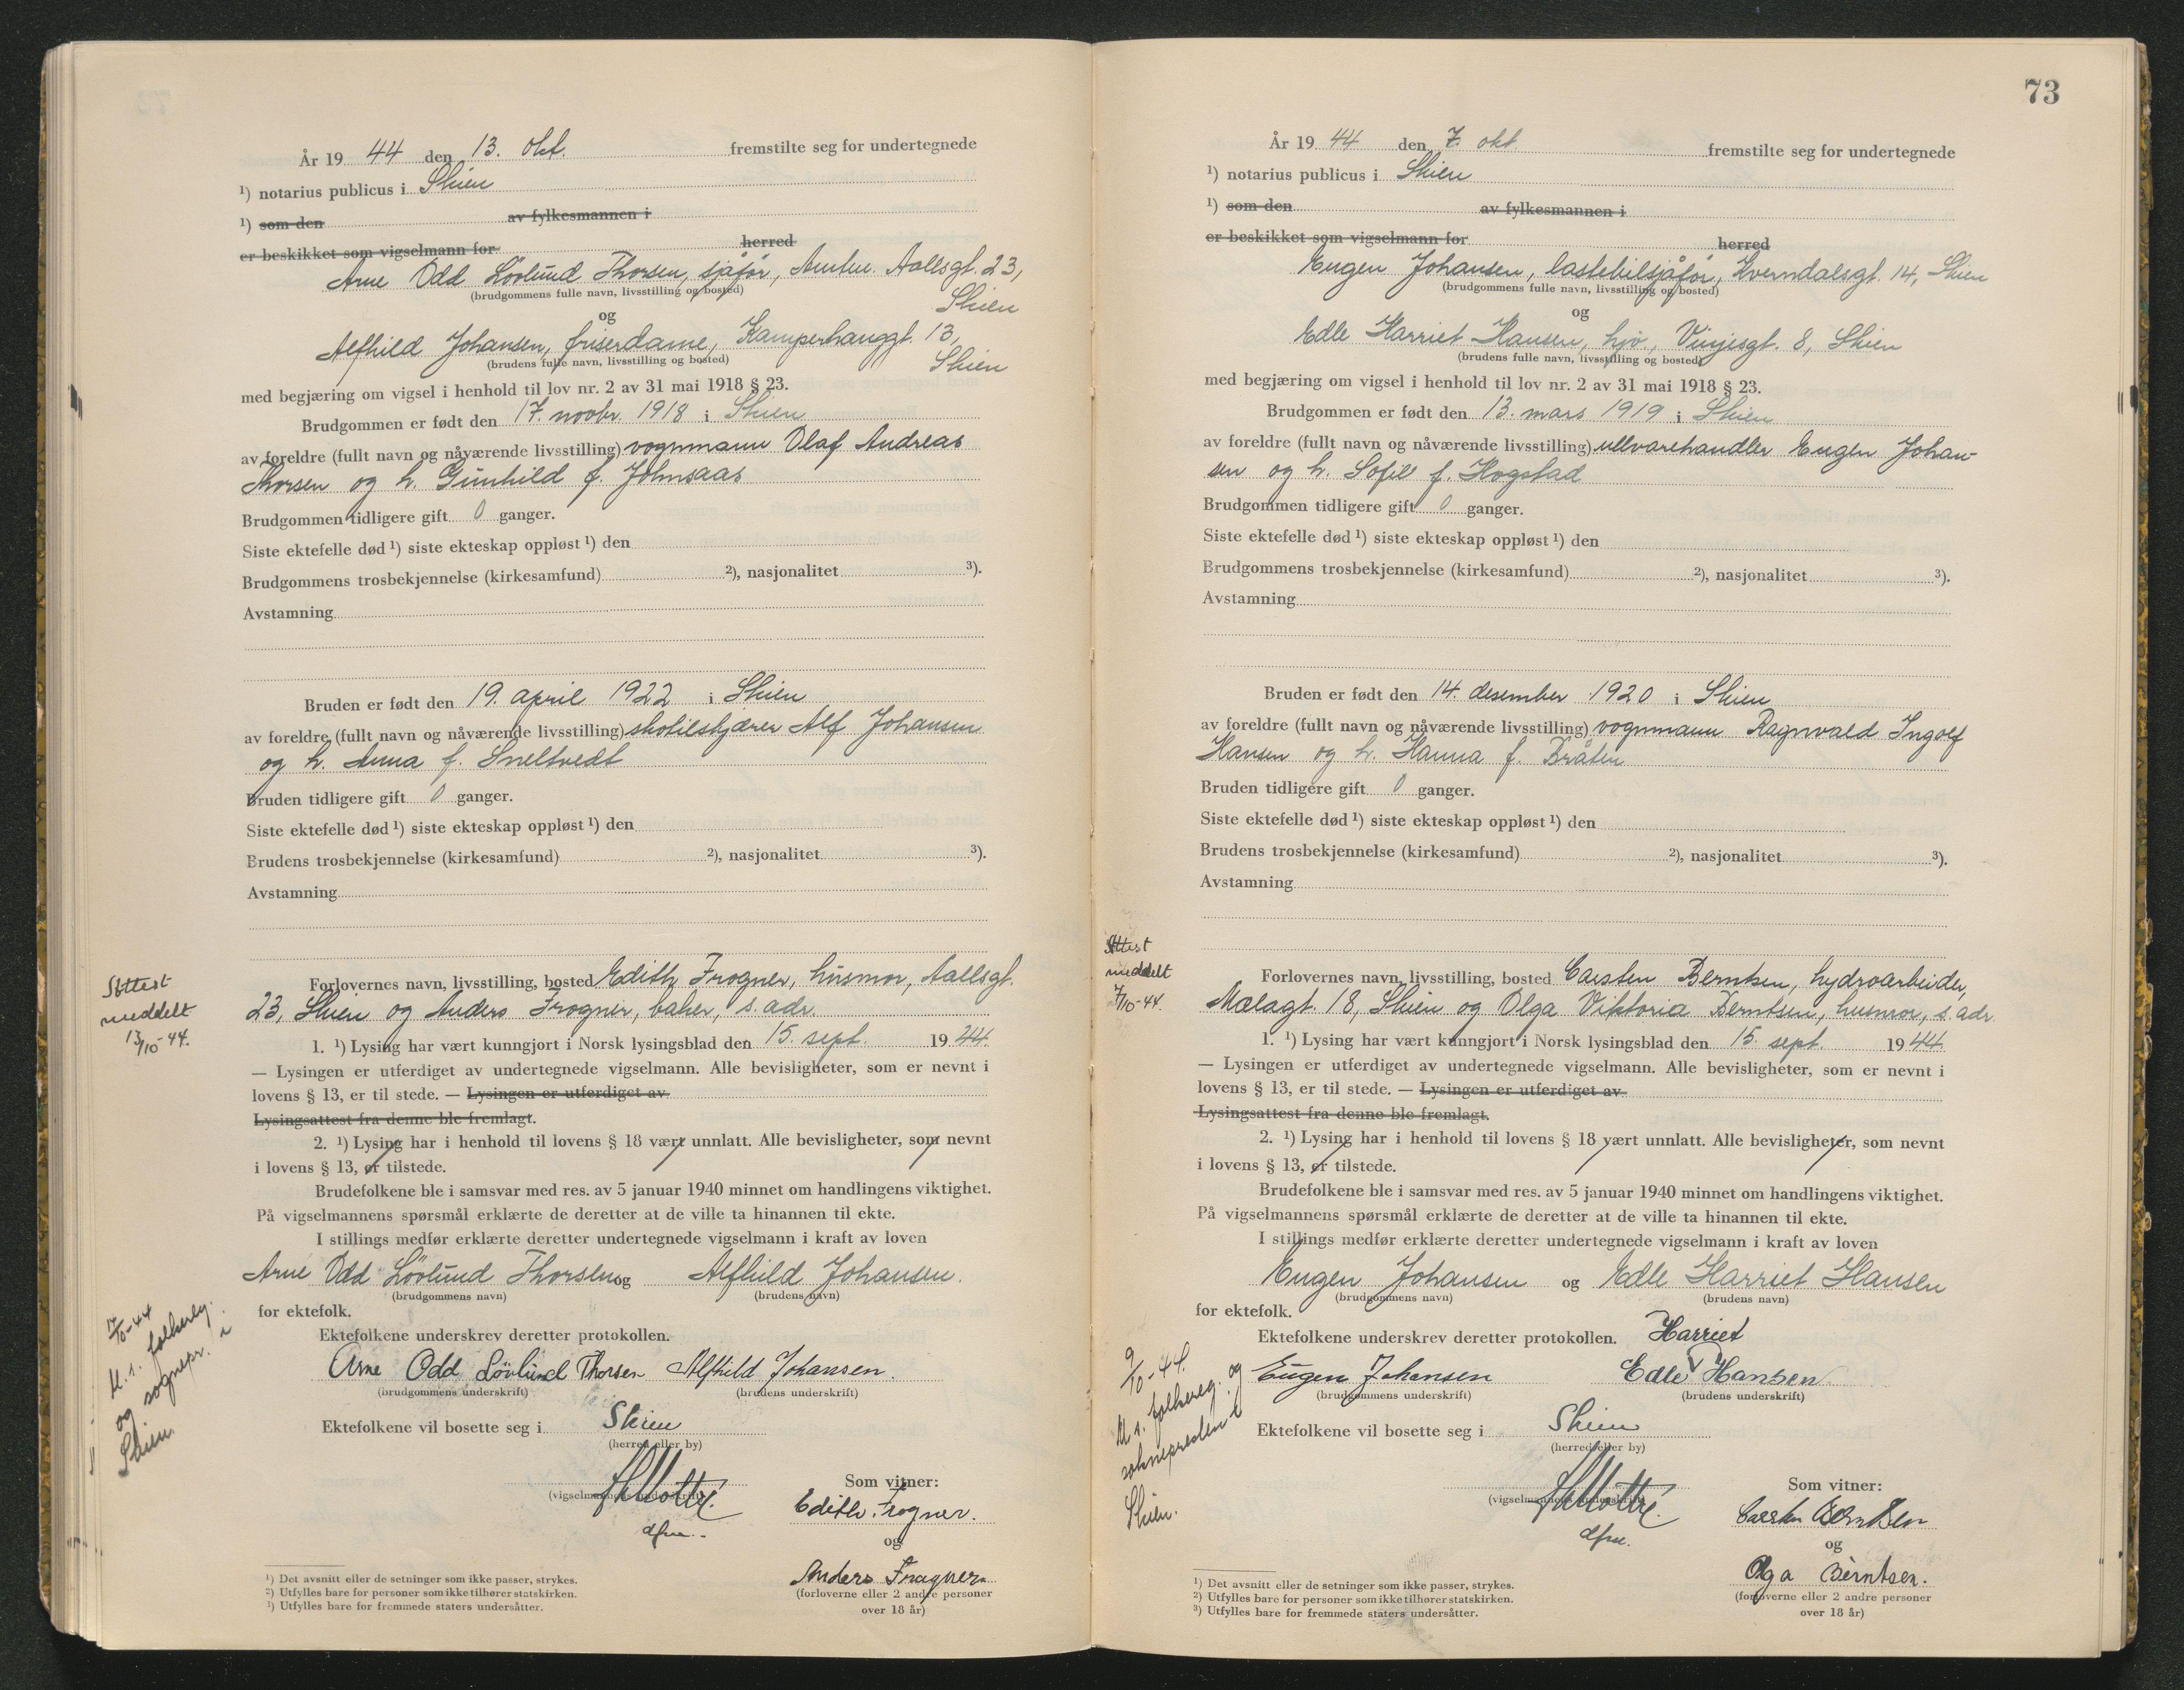 År 19 44 den 13. okt. fremstilte seg for undertegnede
¹) notarius publicus i Skien
¹) som den av fylkesmannen i
er beskikket som vigselmann for herred
Arne Odd Lövlund Thorsen, sjåför, Amtm. Aallsgt. 23,
(brudgommens fulle navn, livsstilling og bosted)
Skien
og
Alfhild Johansen, friserdame, Kamperhauggt. 13,
(brudens fulle navn, livsstilling og bosted)
Skien
med begjæring om vigsel i henhold til lov nr. 2 av 31 mai 1918 § 23.
Brudgommen er født den 17. novbr. 1918 i Skien
av foreldre (fullt navn og nåværende livsstilling) vognmann Olaf Andreas
Thorsen og h. Gunhild f. Johnsaas
Brudgommen tidligere gift 0 ganger.
Siste ektefelle død ¹) siste ekteskap oppløst ¹) den
Brudgommens trosbekjennelse (kirkesamfund) ²), nasjonalitet ³).
Avstamning
Bruden er født den 19. april 1922 i Skien
av foreldre (fullt navn og nåværende livsstilling) skotilskjærer Alf Johansen
og h. Anna f. Sneltvedt
Bruden tidligere gift 0 ganger.
Siste ektefelle død ¹) siste ekteskap oppløst ¹) den
Brudens trosbekjennelse (kirkesamfund) ²), nasjonalitet ³).
Avstamning
Attest
meddelt
13/10-44.
Forlovernes navn, livsstilling, bosted Edith Frogner, husmor, Aallsgt.
23, Skien og Anders Frogner, baker, s. adr.
1. ¹) Lysing har vært kunngjort i Norsk lysingsblad den 15. sept. 19 44.
— Lysingen er utferdiget av undertegnede vigselmann. Alle bevisligheter, som er nevnt i
lovens § 13, er til stede. — Lysingen er utferdiget av
Lysingsattest fra denne ble fremlagt.
2. ¹) Lysing har i henhold til lovens § 18 vært unnlatt. Alle bevisligheter, som nevnt
i lovens § 13, er tilstede.
Brudefolkene ble i samsvar med res. av 5 januar 1940 minnet om handlingens viktighet.
På vigselmannens spørsmål erklærte de deretter at de ville ta hinannen til ekte.
I stillings medfør erklærte deretter undertegnede vigselmann i kraft av loven
Arne Odd Lövlund Thorsen og Alfhild Johansen.
(brudgommens navn) (brudens navn)
for ektefolk.
17/10-44
M. t. folkereg.
og sognepr. i
Skien.
Ektefolkene underskrev deretter protokollen.
Arne Odd Lövlund Thorsen Alfhild Johansen.
(brudgommens underskrift) (brudens underskrift)
Ektefolkene vil bosette seg i Skien
(herred eller by)
(vigselmannens underskrift)
dfm.
Som vitner:
Edith Frogner.
og
Anders Frogner
(forloverne eller 2 andre personer
over 18 år)
¹) Det avsnitt eller de setninger som ikke passer, strykes.
²) Utfylles bare for personer som ikke tilhører statskirken.
³) Utfylles bare for fremmede staters undersåtter.
73
År 19 44 den 7. okt. fremstilte seg for undertegnede
¹) notarius publicus i Skien
¹) som den av fylkesmannen i
er beskikket som vigselmann for herred
Eugen Johansen, lastebilsjåför, Hverndalsgt. 14, Skien
(brudgommens fulle navn, livsstilling og bosted)
og
Edle Harriet Hansen, hjv., Vinjesgt. 8, Skien
(brudens fulle navn, livsstilling og bosted)
med begjæring om vigsel i henhold til lov nr. 2 av 31 mai 1918 § 23.
Brudgommen er født den 13. mars 1919 i Skien
av foreldre (fullt navn og nåværende livsstilling) ullvarehandler Eugen Johan-
sen og h. Sofie f. Hogstad
Brudgommen tidligere gift 0 ganger.
Siste ektefelle død ¹) siste ekteskap oppløst ¹) den
Brudgommens trosbekjennelse (kirkesamfund) ²), nasjonalitet ³).
Avstamning
Bruden er født den 14. desember 1920 i Skien
av foreldre (fullt navn og nåværende livsstilling) vognmann Ragnvald Ingolf
Hansen og h. Hanna f. Bråten
Bruden tidligere gift 0 ganger.
Siste ektefelle død ¹) siste ekteskap oppløst ¹) den
Brudens trosbekjennelse (kirkesamfund) ²), nasjonalitet ³).
Avstamning
Attest
meddelt
7/10-44.
Forlovernes navn, livsstilling, bosted Carsten Berntsen, hydroarbeider,
Mælagt. 18, Skien og Olga Viktoria Berntsen, husmor, s. adr.
1. ¹) Lysing har vært kunngjort i Norsk lysingsblad den 15. sept. 19 44
— Lysingen er utferdiget av undertegnede vigselmann. Alle bevisligheter, som er nevnt i
lovens § 13, er til stede. — Lysingen er utferdiget av
Lysingsattest fra denne ble fremlagt.
2. ¹) Lysing har i henhold til lovens § 18 vært unnlatt. Alle bevisligheter, som nevnt
i lovens § 13, er tilstede.
Brudefolkene ble i samsvar med res. av 5 januar 1940 minnet om handlingens viktighet.
På vigselmannens spørsmål erklærte de deretter at de ville ta hinannen til ekte.
I stillings medfør erklærte deretter undertegnede vigselmann i kraft av loven
Eugen Johansen og Edle Harriet Hansen
(brudgommens navn) (brudens navn)
for ektefolk.
9/10-44.
M. t. folkereg. og
soknepresten i
Skien.
Ektefolkene underskrev deretter protokollen. Harriet
Eugen Johansen Edle Hansen
(brudgommens underskrift) (brudens underskrift)
Ektefolkene vil bosette seg i Skien
(herred eller by)
(vigselmannens underskrift)
dfm.
Som vitner:
Carsten Berntsen
og
Olga Berntsen.
(forloverne eller 2 andre personer
over 18 år)
¹) Det avsnitt eller de setninger som ikke passer, strykes.
²) Utfylles bare for personer som ikke tilhører statskirken.
³) Utfylles bare for fremmede staters undersåtter.